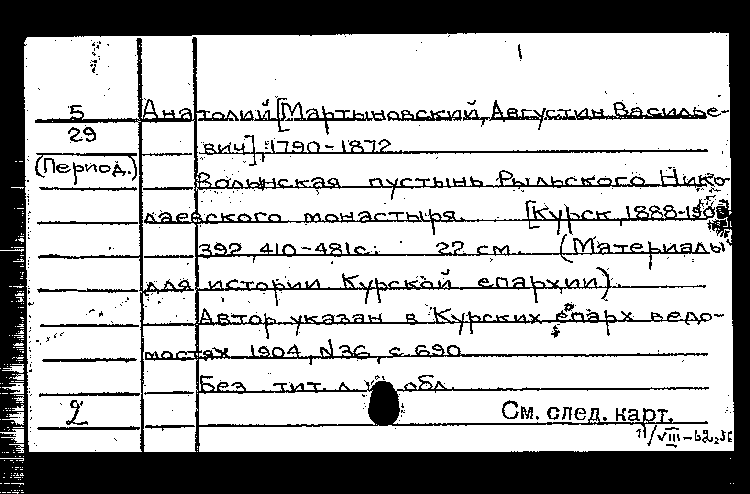 1
5 Анатолий [Мартыновский, Августин Василье-
29 вич], 1790-1872
(Период.) Волынская пустынь Рыльского Нико-
лаевского монастыря. [Курск, 1888-190
392, 410-481с. 22 см. (Материалы
для истории Курской епархии).
Автор указан в Курских епарх ведо-
мостях 1904, N36, с 690
Без тит. л. обл.
2 См. след. карт.